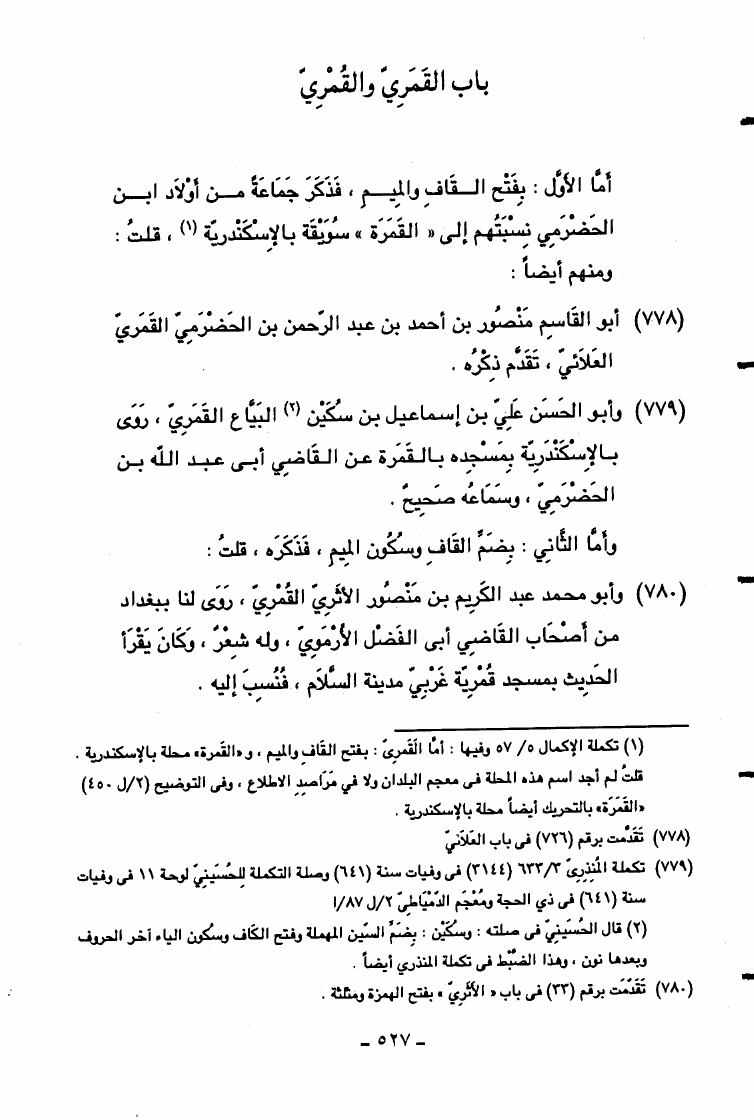 باب القَمَرِيّ والقُمْرِيّ
أمَّا الأوَّل : بِفَتْح الـقَاف والمِيـم ، فَذَكَرَ جَمَاعَةً مـن أوْلاَد ابـن
الحَضْرَمِي نِسْبَتُهم إلى « القَمَرَة » سوُيَقْة بالإسْكَنْدريّة (١) ، قلتُ :
ومنهم أيضاً :
(٧٧٨) أبو القَاسِم مَنْصُور بن أحمد بن عبد الرّحمن بن الحَضْرَمِيّ القَمَرِيّ
العَلَائيّ ، تَقَدَّم ذِكْرُه .
(٧٧٩) وأبو الحَسَن عَلِيّ بن إسماعيل بن سُكَيْن (٢) البَيَّاع القَمَرِيّ ، رَوَى
بالإسْكَنْدَرِيّة بِمَسْجِده بالقَمَرة عن القَاضي أبى عبد اللّه بن
الحَضْرَمِيّ ، وسَمَاعُه صَحِيحٌ .
وأمَّا الثَّانِي : بِضَمِّ القَافِ وسُكُون المِيم ، فَذَكَرَه ، قلتُ :
(٧٨٠) وأبو محمد عبد الكَرِيم بن مَنْصُور الأثَرِيّ القُمْرِيّ ، رَوَى لنا ببغداد
من أصْحَاب القَاضِي أبى الفَضْل الأُرْمَوِيّ ، وله شِعْرٌ ، وَكَانَ يَقْرَأ
الحَدِيث بمسجد قُمْرِيّة غَرْبِيّ مدينة السَّلاَم ، فَنُسِبَ إليه .
(١) تكملة الإكمال ٥/ ٥٧ وفيها : أمَّا القَمَرِىّ : بفتح القَاف والميم ، و «القَمرة» محلة بالإسكندرية .
قلتُ لم أجد اسم هذه المحلة فى معجم البلدان ولا في مَرَاصِدِ الاطلاع ، وفى التوضيح (٢/ل ٤٥٠)
«القَمَرَة» بالتحريك أيضاً محلة بالإسكندرية .
(٧٧٨) تَقَدَّمت برقم (٧٢٦) فى باب العَلاَنيّ
(٧٧٩) تكملة المُنذِرِىّ ٦٣٣/٣ (٣١٤٤) فى وفيات سنة (٦٤١) وصلة التكملة لِلحُسَينِيّ لوحة ١١ فى وفيات
سنة (٦٤١) فى ذي الحجة ومُعْجَم الدِّمْيَاطِىّ ٢/ل ٨٧/ا
(٢) قال الحُسَينِيّ فى صلته : وسُكَيْن : بِضَمِّ السِّين المهملة وفتح الكَاف وسكون الياء آخر الحروف
وبعدها نون ، وهذا الضَّبْط فى تكملة المنذري أيضاً .
(٧٨٠) تَقَدَّمَت برقم (٣٣) فى باب « الأثَرِيّ » بفتح الهمزة ومثلثة .
ـ ٥٢٧ ـ